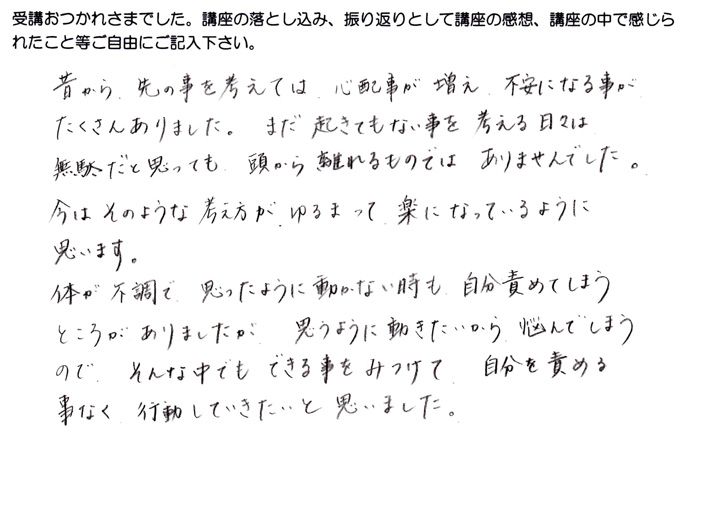 受講おつかれさまでした。講座の落とし込み、振り返りとして講座の感想、講座の中で感じら
れたこと等ご自由にご記入下さい。
昔から、先の事を考えては、心配事が増え、不安になる事が
たくさんありました。まだ起きてもない事を考える日々は
無駄だと思っても、頭から離れるものではありませんでした。
今はそのような考え方がゆるまって楽になっているように
思います。
体が不調で、思ったように動かない時も、自分責めてしまう
ところがありましたが、思うように動きたいから悩んでしまう
ので、そんな中でもできる事をみつけて、自分を責める
事なく、行動していきたいと思いました。